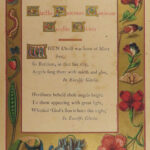 WHEN Christ was born of Mary
free,
In Bethlem, in that fair city,
Angels sang there with mirth and glee,
In Excelsis Gloria.
Herdsmen beheld these angels bright
To them appearing with great light,
Who said "God's Son is born this night,
In Excelsis Gloria.